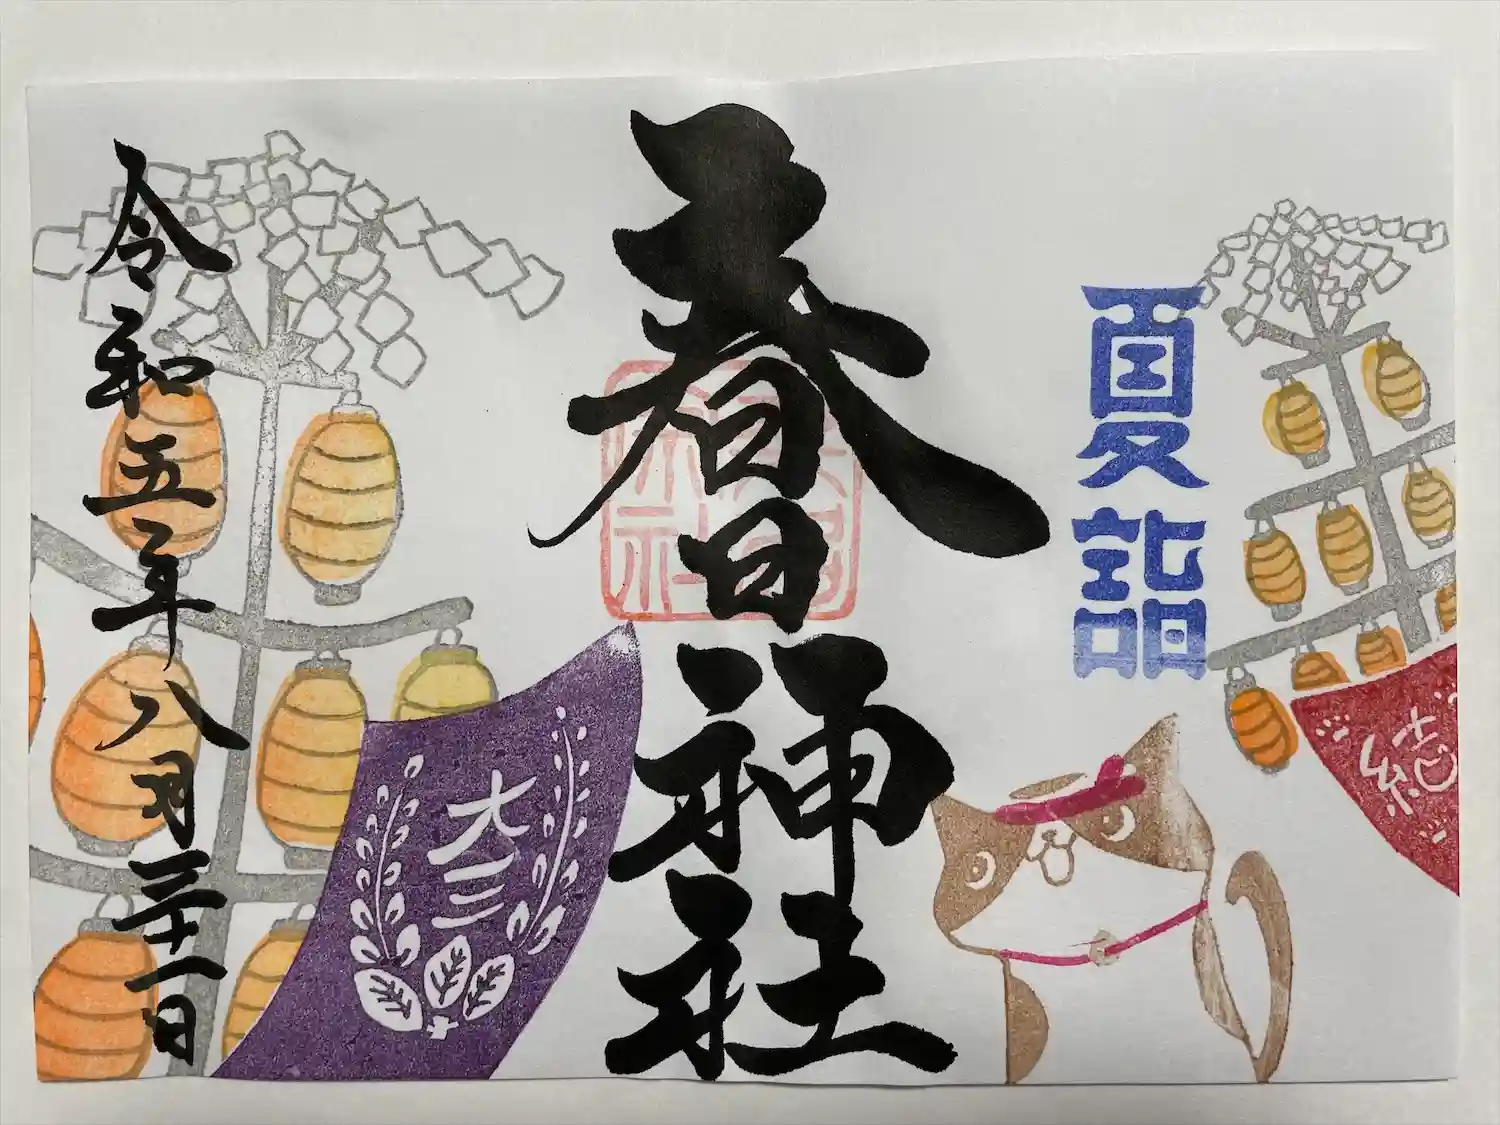 夏詣
結
春日神社
大三
令和五年八月三十一日